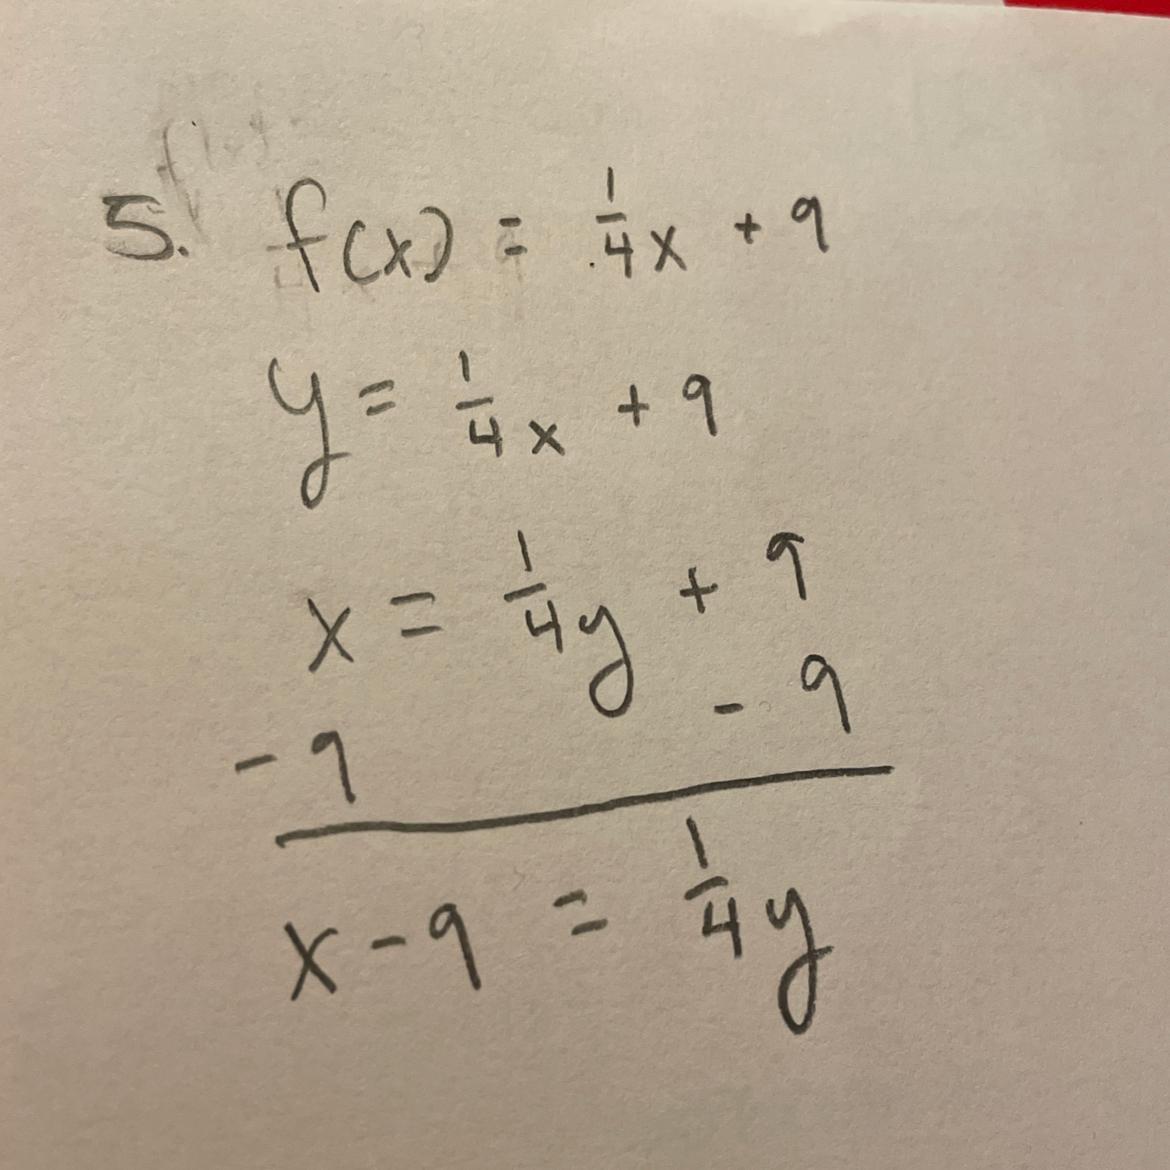 5. f(x) = 1/4x + 9
y = 1/4x + 9
x = 1/4y + 9
- 9 - 9
x - 9 = 1/4y